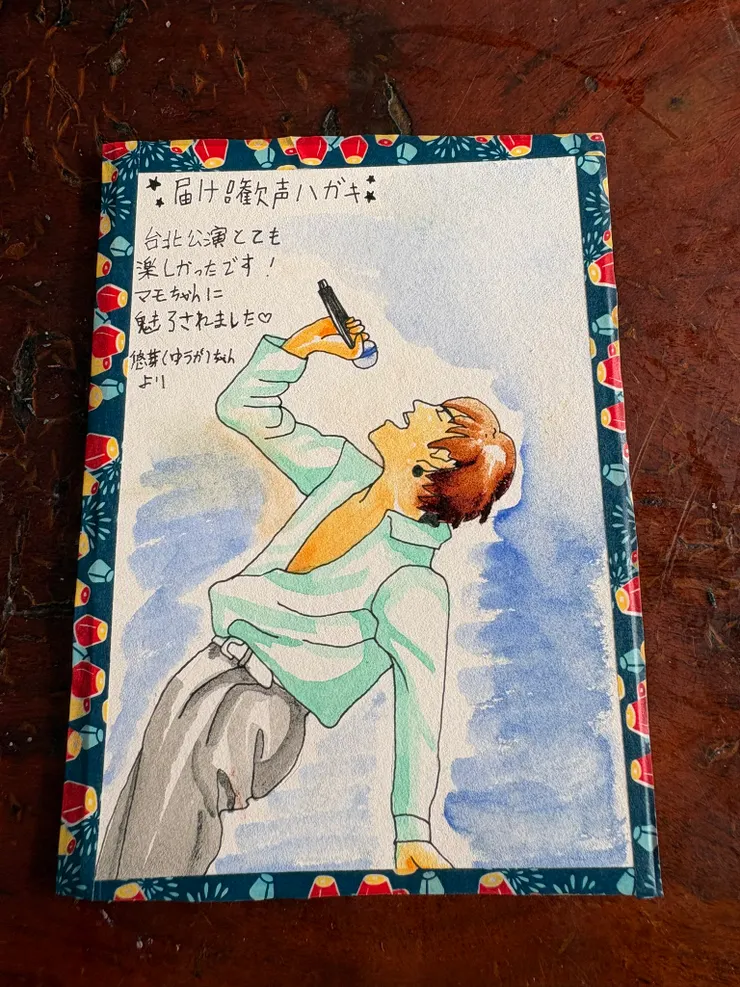 届け!!歓声ハガキ
台北公演とても
楽しかったです!
マモちゃんに
魅了されました♡
悠芽(ゆうが)ちゃん
より